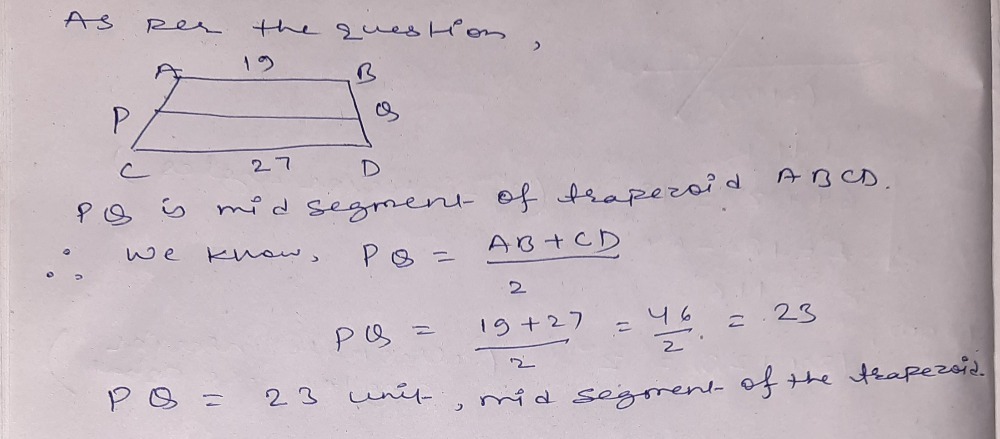 As per the question,
A 19 B
P Q
C 27 D
PQ is mid segment of trapezoid ABCD.
∴ We know, PQ = AB + CD / 2
PQ = 19 + 27 / 2 = 46 / 2 = 23
PQ = 23 unit, mid segment of the trapezoid.